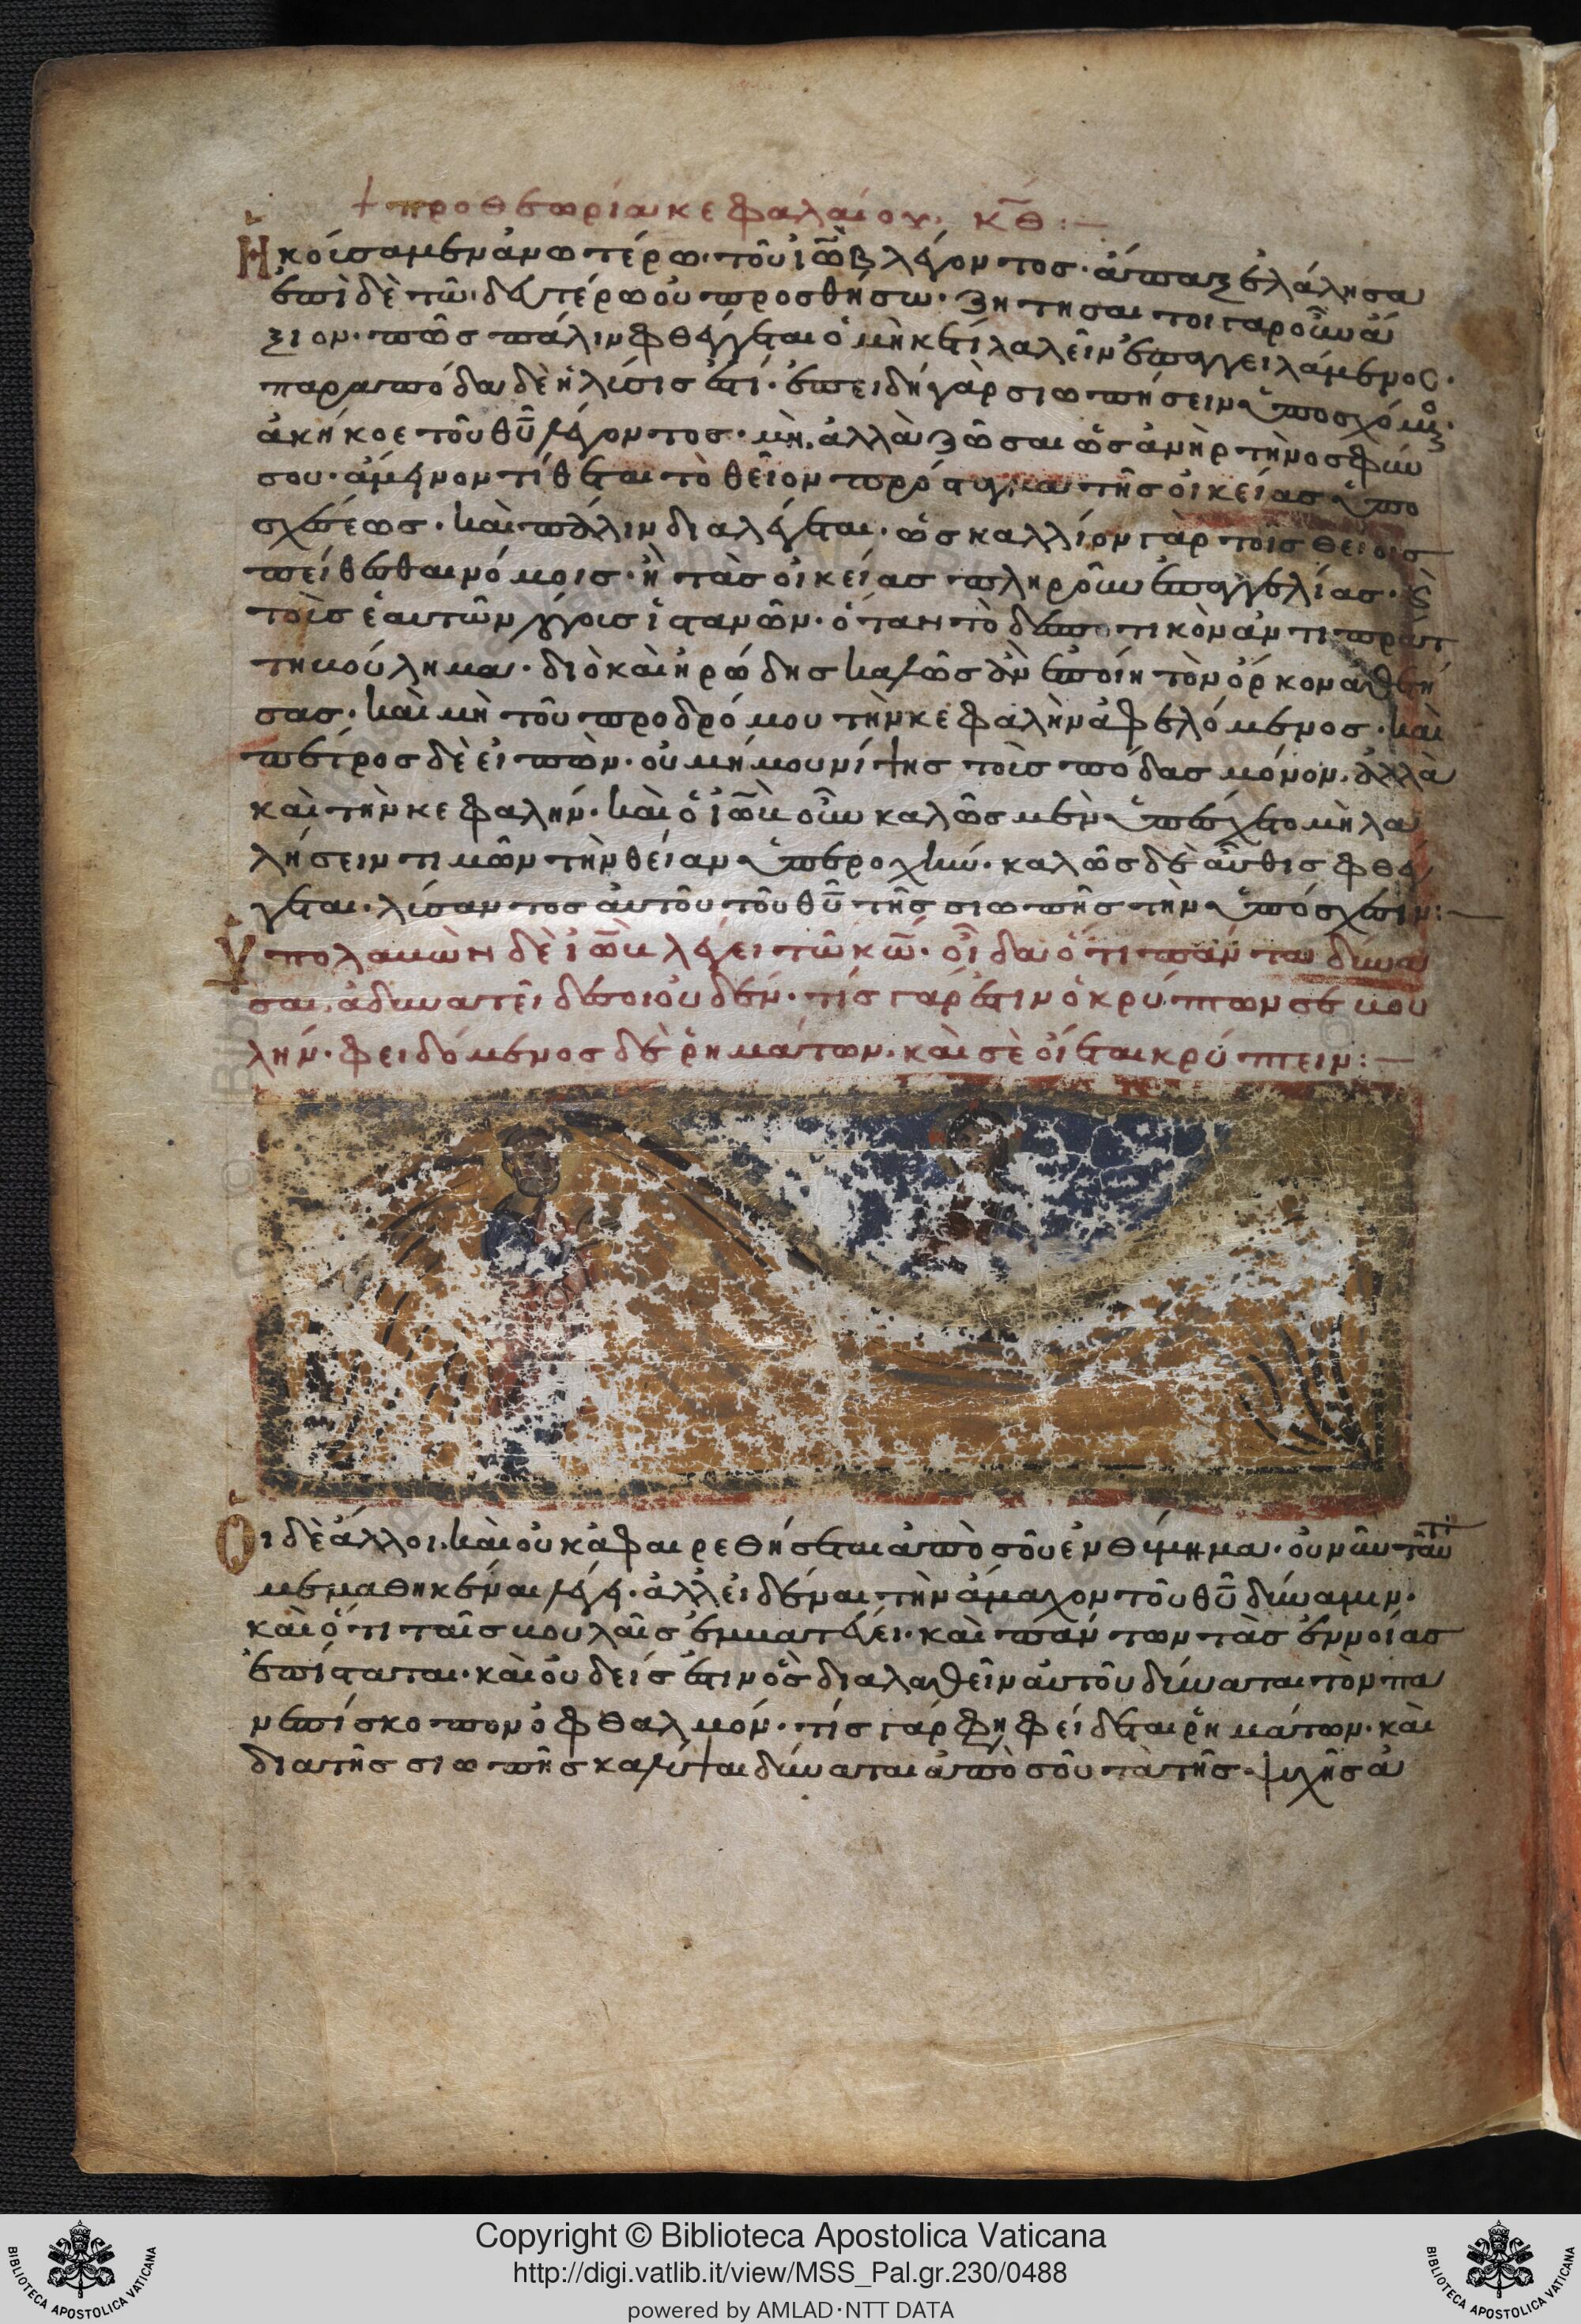 + προθεωρία κεφαλαίου κ̅θ̅ :—
Ἠκούσαμεν ἀνωτέρω· τοῦ ἰώβ λέγοντος· ἅπαξ ἐλάλησα
ἐπὶ δὲ τῶ δευτέρω οὐ προσθήσω· ζητῆσαι τοιγαροῦν ἄ
ξιον· πῶς πάλιν φθέγγεται ὁ μηκέτι λαλεῖν ἐπαγγειλάμενος·
παραπόδα δὲ ἡ λύσις ἐστί· ἐπειδὴ γὰρ σιωπήσειν ὑποσχόμενος·
ἀκήκοε τοῦ θ̅υ̅ λέγοντος· μὴ, ἀλλὰ ζῶσαι ὡς ἀνὴρ τὴν ὀσφύν
σου· ἀμείνον τίθεται τὸ θεῖον πρόσταγμα τῆς οἰκείας ὑπο
σχέσεως· καὶ πάλιν διαλέγεται· ὡς κάλλιον γὰρ τοῖς θείοις
πείθεσθαι νόμοις· ἢ τὰς οἰκείας πληροῦν ἐπαγγελίας· ϗ
τοῖς ἑαυτῶν λόγοις ἱσταμῶν· ὅταν τὸ δεσποτικὸν ἀντιπράττ
τη βούλημα· διὸ καὶ ἡρώδης καλῶς ἂν ἐποίη τὸν ὅρκον ἀθετή
σας· καὶ μὴ τοῦ προδρόμου τὴν κεφαλὴν ἀφελόμενος· καὶ
πέτρος δὲ εἰπὼν· οὐ μή μου νίψης τοὺς πόδας μόνον. ἀλλὰ
καὶ τὴν κεφαλήν· καὶ ὁ ἰὼβ οὖν καλῶς μὲν ὑπέσχετο μὴ λα
λήσειν τιμῶν τὴν θείαν ὑπεροχήν· καλῶς δὲ αὖθις φθέγ
γεται· λύσαντος αὐτοῦ τοῦ θ̅υ̅ τῆς σιωπῆς τὴν ὑπόσχεσιν :—
Ὑπολαβὼν δὲ ἰὼβ λέγει τῶ κ̅ω̅· οἶδα ὅτι πάντα δύνα
σαι, ἀδυνατεῖ δέ σοι οὐδέν· τίς γάρ ἐστιν ὁ κρύπτων σε βου
λήν· φειδόμενος δὲ ῥημάτων· καὶ σὲ οἴεται κρύπτειν :—
Οἱ δὲ ἄλλοι. καὶ οὐκ ἀφαιρεθήσεται ἀπὸ σοῦ ἐνθύμημα· οὐ νῦν τοῦτο
μεμαθηκέναι λέγει· ἀλλ' εἰδέναι τὴν ἄμαχον τοῦ θ̅υ̅ δύναμιν·
καὶ ὅτι ταῖς βουλαῖς ἐμβατεύει· καὶ πάντων τὰς ἐννοίας
ἐπίσταται· καὶ οὐδείς ἐστιν ὃς διαλαθεῖν αὐτοῦ δύναται τὸν πα
νεπίσκοπον ὀφθαλμόν· τίς γάρ φησι φείδεται ῥημάτων· καὶ
διὰ τῆς σιωπῆς καλύψαι δύναται ἀπὸ σοῦ τὰ τῆς ψυχῆς ἀ
Copyright © Biblioteca Apostolica Vaticana
http://digi.vatlib.it/view/MSS_Pal.gr.230/0488
powered by AMLAD·NTT DATA
BIBLIOTECA APOSTOLICA VATICANA
BIBLIOTECA APOSTOLICA VATICANA